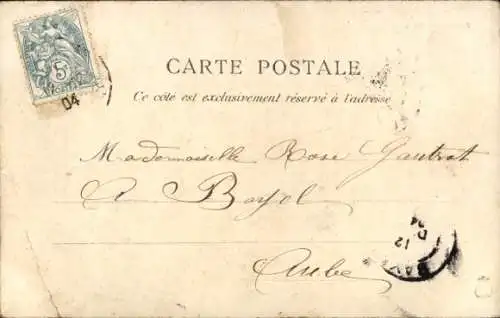 5
04
CARTE POSTALE
Ce côté est exclusivement réservé à l'adresse
Mademoiselle Rose Gautrot
A Bayel
Aube
12
04
BAY